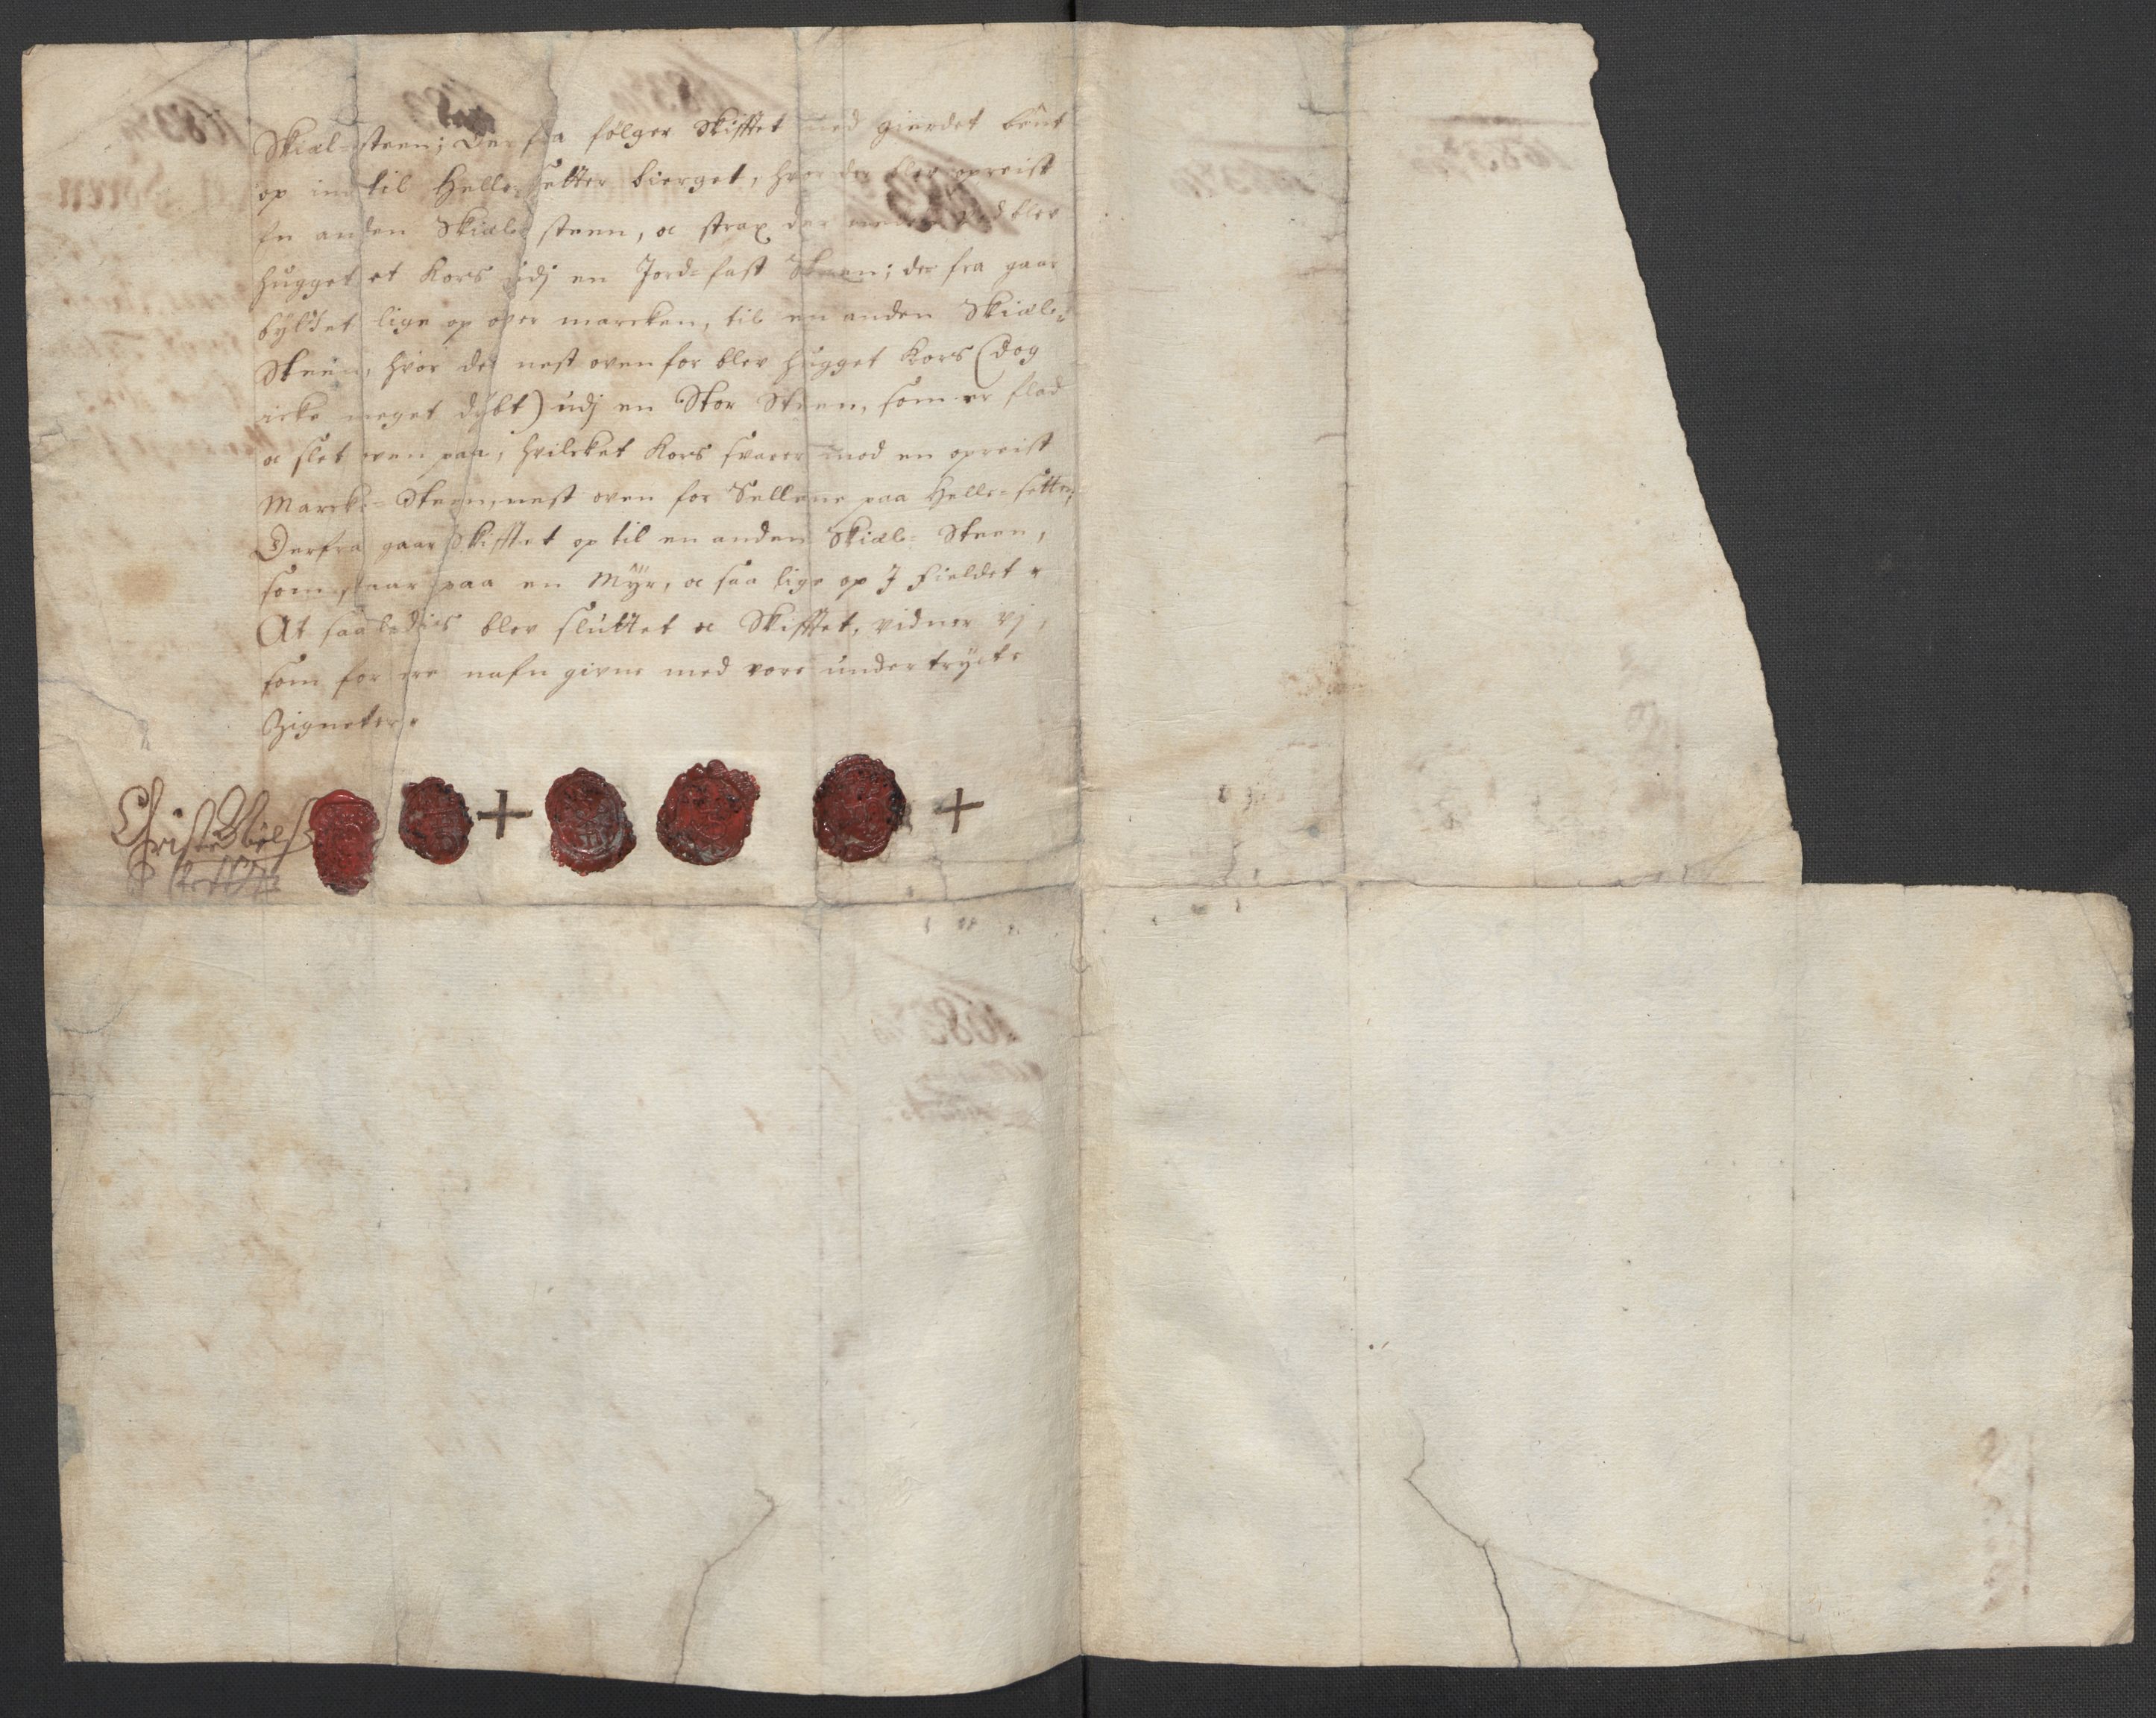 Skiæl-steen; Der fra følger Skifftet med gierdet bent
op ind til Helle-setter bierget, hvor der blev opreist
En anden Skiæl steen, oc strax der neden ved blev
hugget et Kors udj en Jord-fast Steen; der fra gaar
byttet lige op over marcken, til en anden Skiæl-
Steen, hvor der nest oven for blev hugget Kors (dog
icke meget dybt) udj en Stor Steen, som er flad
oc slet oven paa, hvilcket Kors svarer mod en opreist
Marcke-Steen, nest oven for Sellene paa Helle-setter;
Derfra gaar Skifftet op til en anden Skiæl-Steen,
som staar paa en Myr, oc saa lige op J Fieldet
At saaledis blev sluttet oc Skifftet, vidner vj,
som for ere nafn givne med vore undertryckte
Zigneter.
+ +